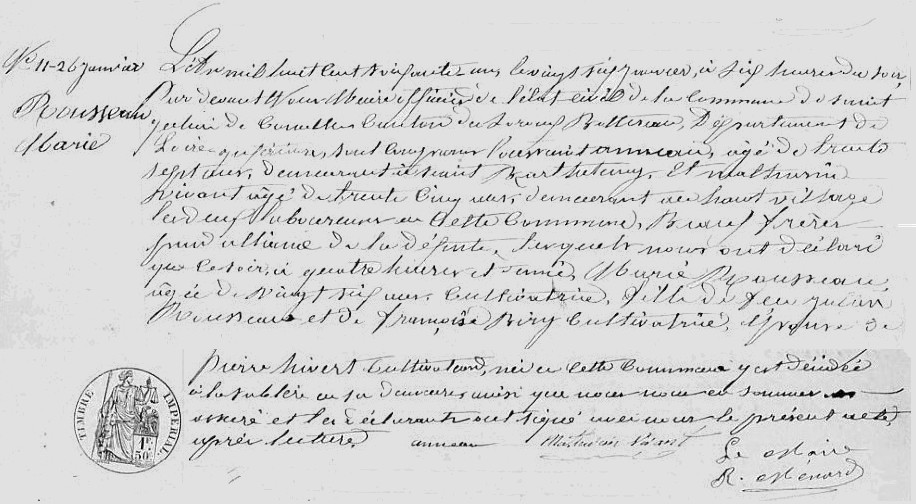 No 11-26 janvier
Rousseau
Marie
L'An mil huit cent soixante ans le vingt six janvier, à six heures du soir
Par devant Nous Maire officier de l'état civil de la Commune de saint
julien de Concelles Canton du Loroux Bottereau, Département de
Loire inférieure, sont comparus toussaint anneau, agé de trente
sept ans, demeurant à saint Barthelemy, Et mathurin
hivert agé de trente cinq ans, demeurant au haut village
les deux laboureurs en Cette Commune, Beaux frères
par alliance de la défunte, lesquels nous ont déclaré
que ce soir, à quatre heures et demie, Marie Rousseau,
agée de vingt six ans, Cultivatrice, fille de feu julien
Rousseau et de françoise Biry Cultivatrice, Epouse de
pierre hivert Cultivateur, née en Cette Commune y est décédée
à la sablère en sa demeure ainsi que nous nous en sommes
assuré et les déclarants ont signé avec nous le présent acte,
après lecture, anneau Mathurin hivert
Le Maire
R. Ménard
TIMBRE IMPERIAL
1F.
50c.